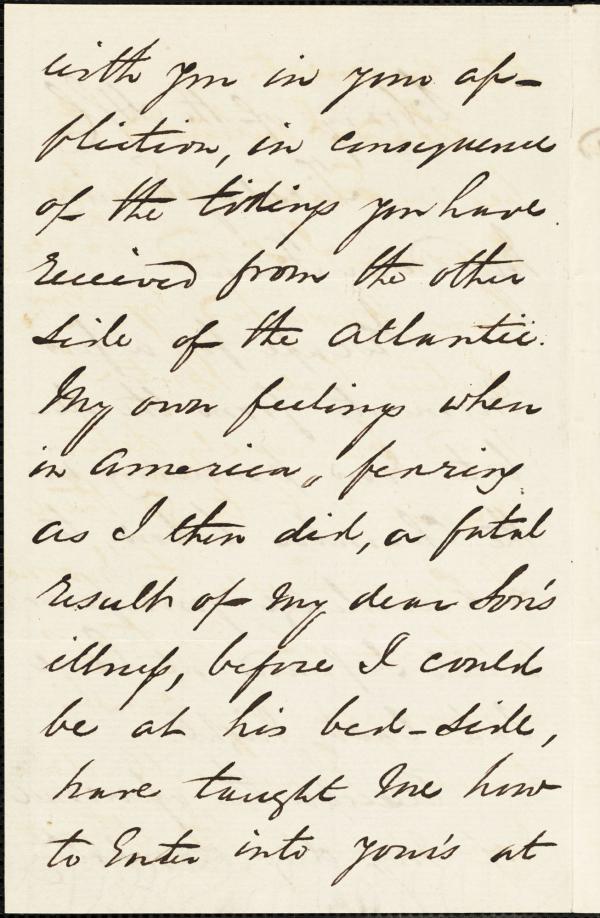 with you in your af-
fliction, in consequence
of the tidings you have
received from the other
side of the Atlantic.
My own feelings when
in America, fearing
as I then did, a fatal
result of my dear Son's
illness, before I could
be at his bed-side,
have taught me how
to Enter into your's at